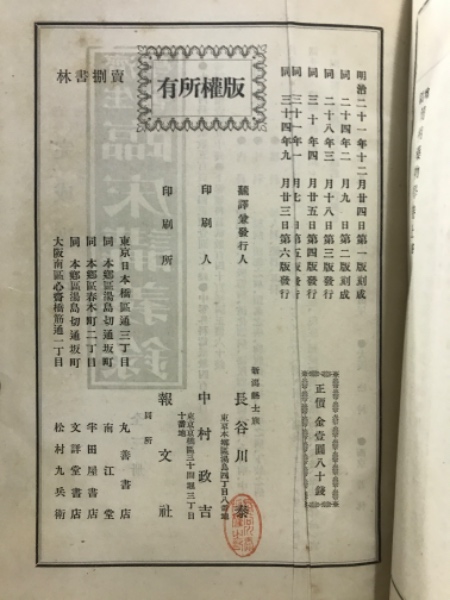 明治二十一年十二月廿四日第一版刻成
同二十四年二月九日第二版刻成
同二十八年三月十八日第三版發行
同三十年四月廿五日第四版發行
同三十一年一月七日第五版發行
同三十四年九月廿三日第六版發行
正價金壹圓八十錢
版權所有
翻譯兼發行人
新潟縣士族
長谷川泰
東京本鄉區湯島四丁目八番地
印刷人
中村政吉
東京京橋區三十間堀三丁目十番地
印刷所
報文社
同所
賣捌書林
東京日本橋區通三丁目
丸善書店
同本鄉區湯島切通坂町
南江堂
同本鄉區春木町二丁目
宇田屋書店
同本鄉區湯島切通坂町
文譁堂書店
大阪南區心齋橋筋通一丁目
松村九兵衛